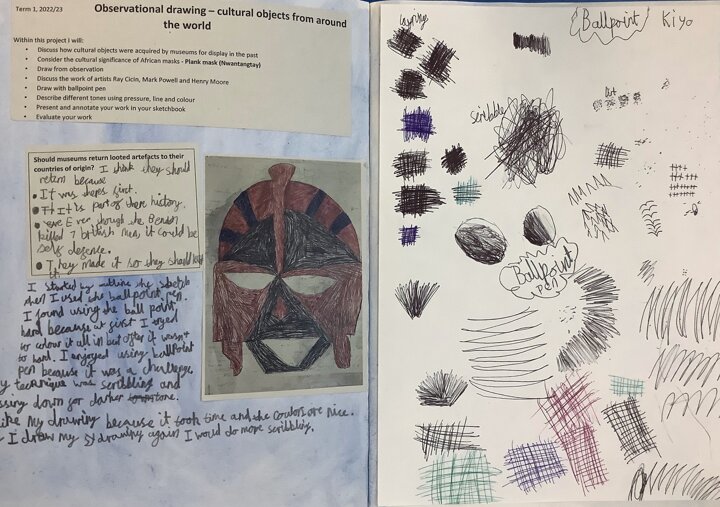 Term 1, 2022/23
Observational drawing – cultural objects from around
the world
Within this project I will:
• Discuss how cultural objects were acquired by museums for display in the past
• Consider the cultural significance of African masks - Plank mask (Nwantangtay)
• Draw from observation
• Discuss the work of artists Ray Cicin, Mark Powell and Henry Moore
• Draw with ballpoint pen
• Describe different tones using pressure, line and colour
• Present and annotate your work in your sketchbook
• Evaluate your work
Should museums return looted artefacts to their
countries of origin? I think they should
return because
• It was theres first.
• It is part of there history.
• Even though the Benin
killed 7 british men, it could be
self defence.
• They made it so they should
I started by the sketch
then I used the ballpoint pen.
I found using the ball point
hard because at first I tryed
to colour it all in but after it wasn't
to hard. I enjoyed using ballPoint
pen because it was a challenge.
technique was scribbling and
down for darker tone.
like my drawing because it took time and the coulors are nice.
I draw my drawing again I would do more scribbling.
Ballpoint
Kiyo
scribble
Dot
Ballpoint
pen